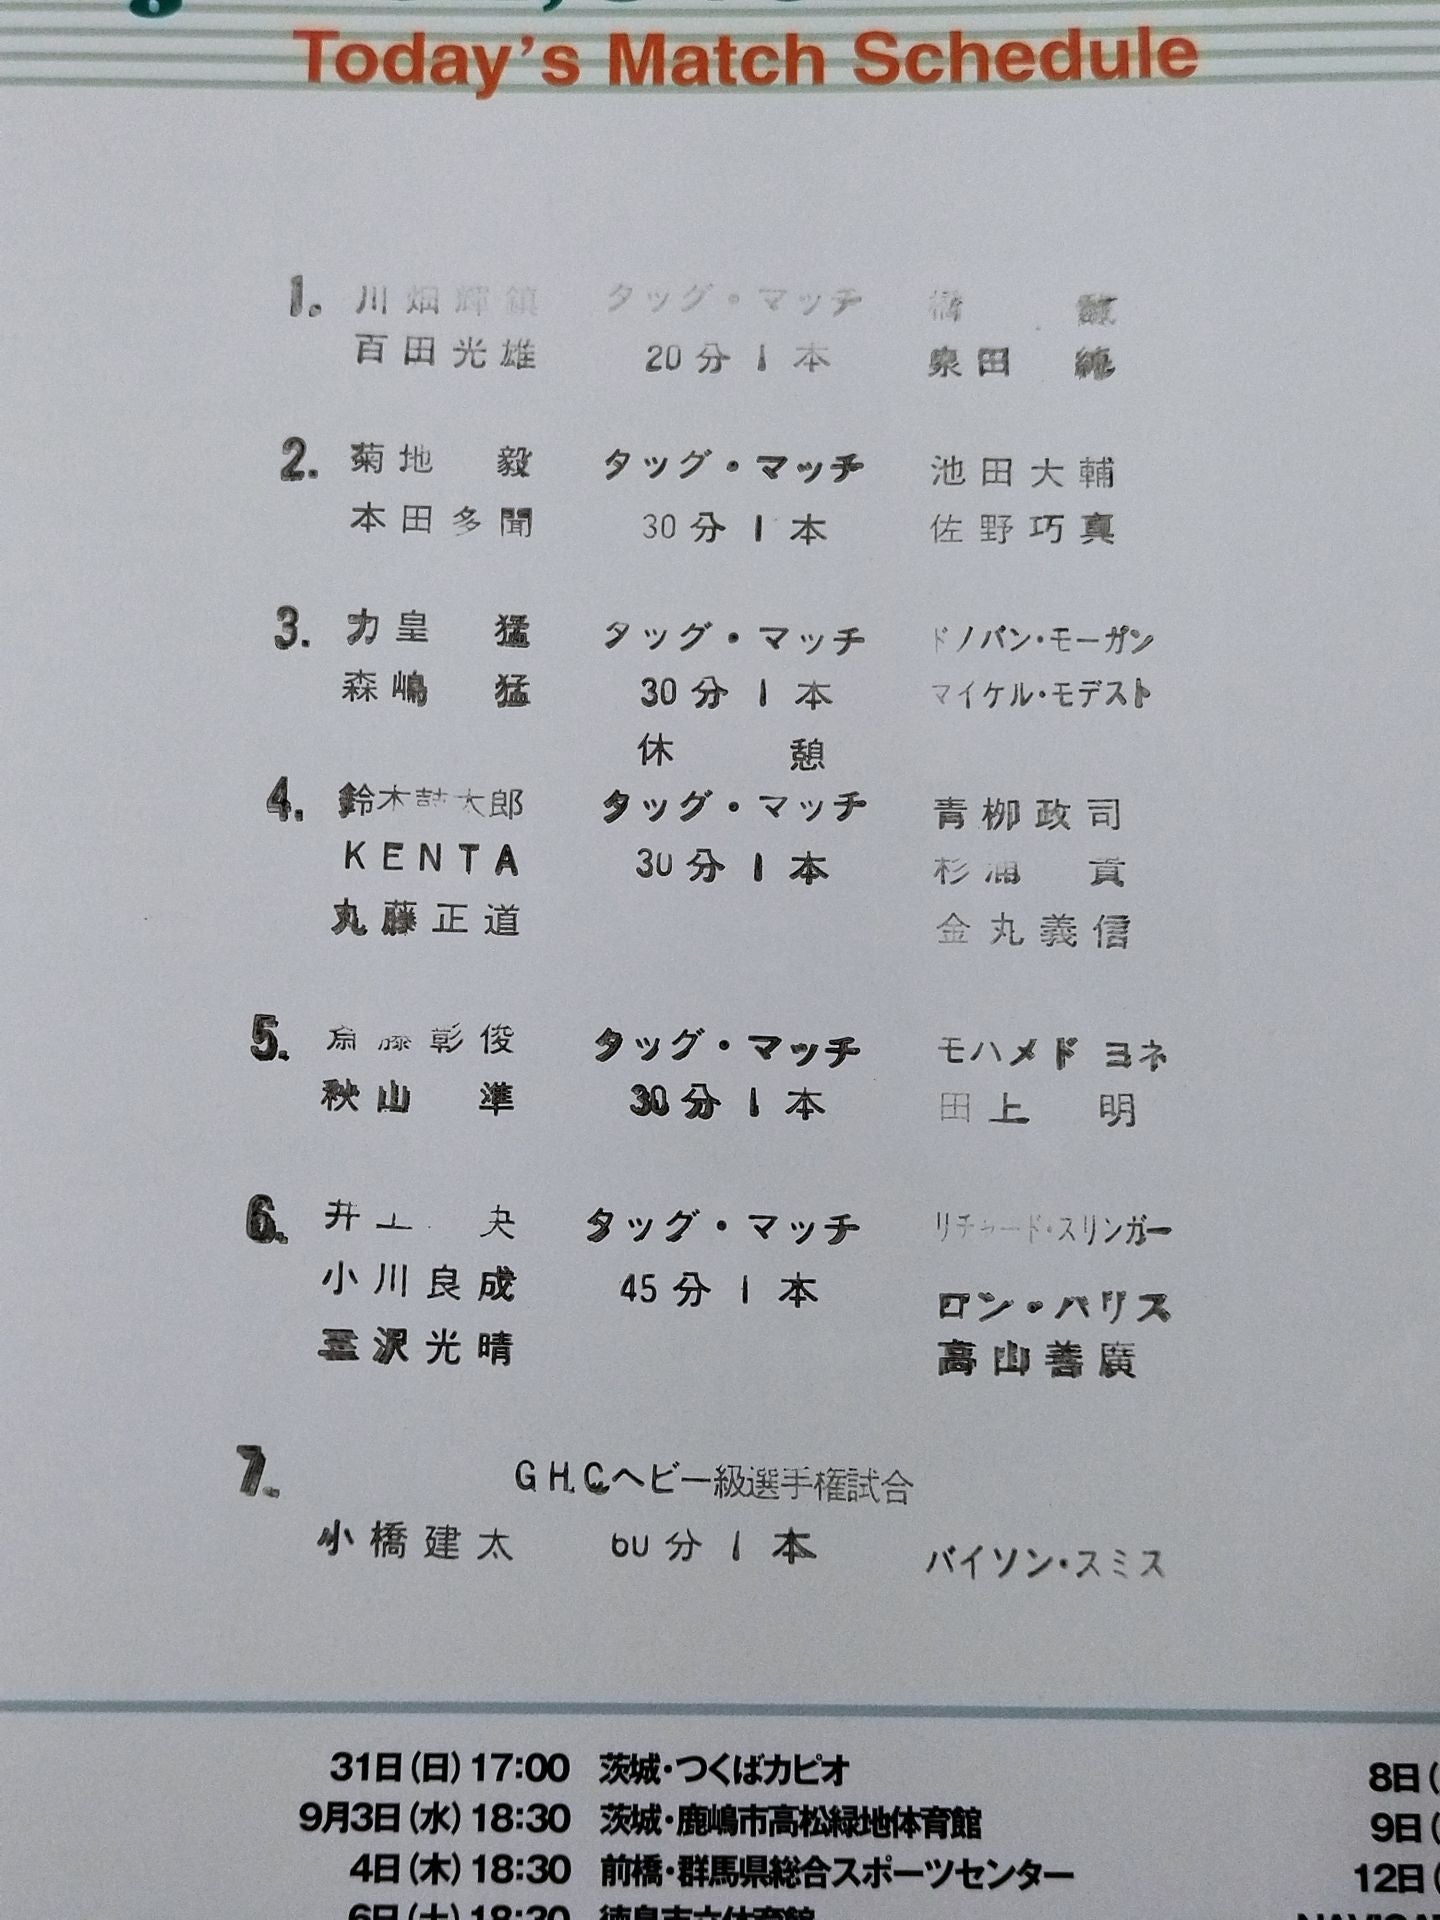 Today's Match Schedule
1. 川畑輝鎮 タッグ・マッチ 橋 誠
百田光雄 20分1本 泉田 純
2. 菊地 毅 タッグ・マッチ 池田大輔
本田多聞 30分1本 佐野巧真
3. 力皇 猛 タッグ・マッチ ドノバン・モーガン
森嶋 猛 30分1本 マイケル・モデスト
休 憩
4. 鈴木鼓太郎 タッグ・マッチ 青柳政司
KENTA 30分1本 杉浦 貴
丸藤正道 金丸義信
5. 斎藤彰俊 タッグ・マッチ モハメド ヨネ
秋山 準 30分1本 田上 明
6. 井上 央 タッグ・マッチ リチャード・スリンガー
小川良成 45分1本 ロン・ハリス
三沢光晴 高山善廣
7. G.H.C.ヘビー級選手権試合
小橋建太 60分1本 バイソン・スミス
31日(日)17:00 茨城・つくばカピオ 8日(
9月3日(水)18:30 茨城・鹿嶋市高松緑地体育館 9日(
4日(木)18:30 前橋・群馬県総合スポーツセンター 12日(
6日(土)18:30 徳島市立体育館